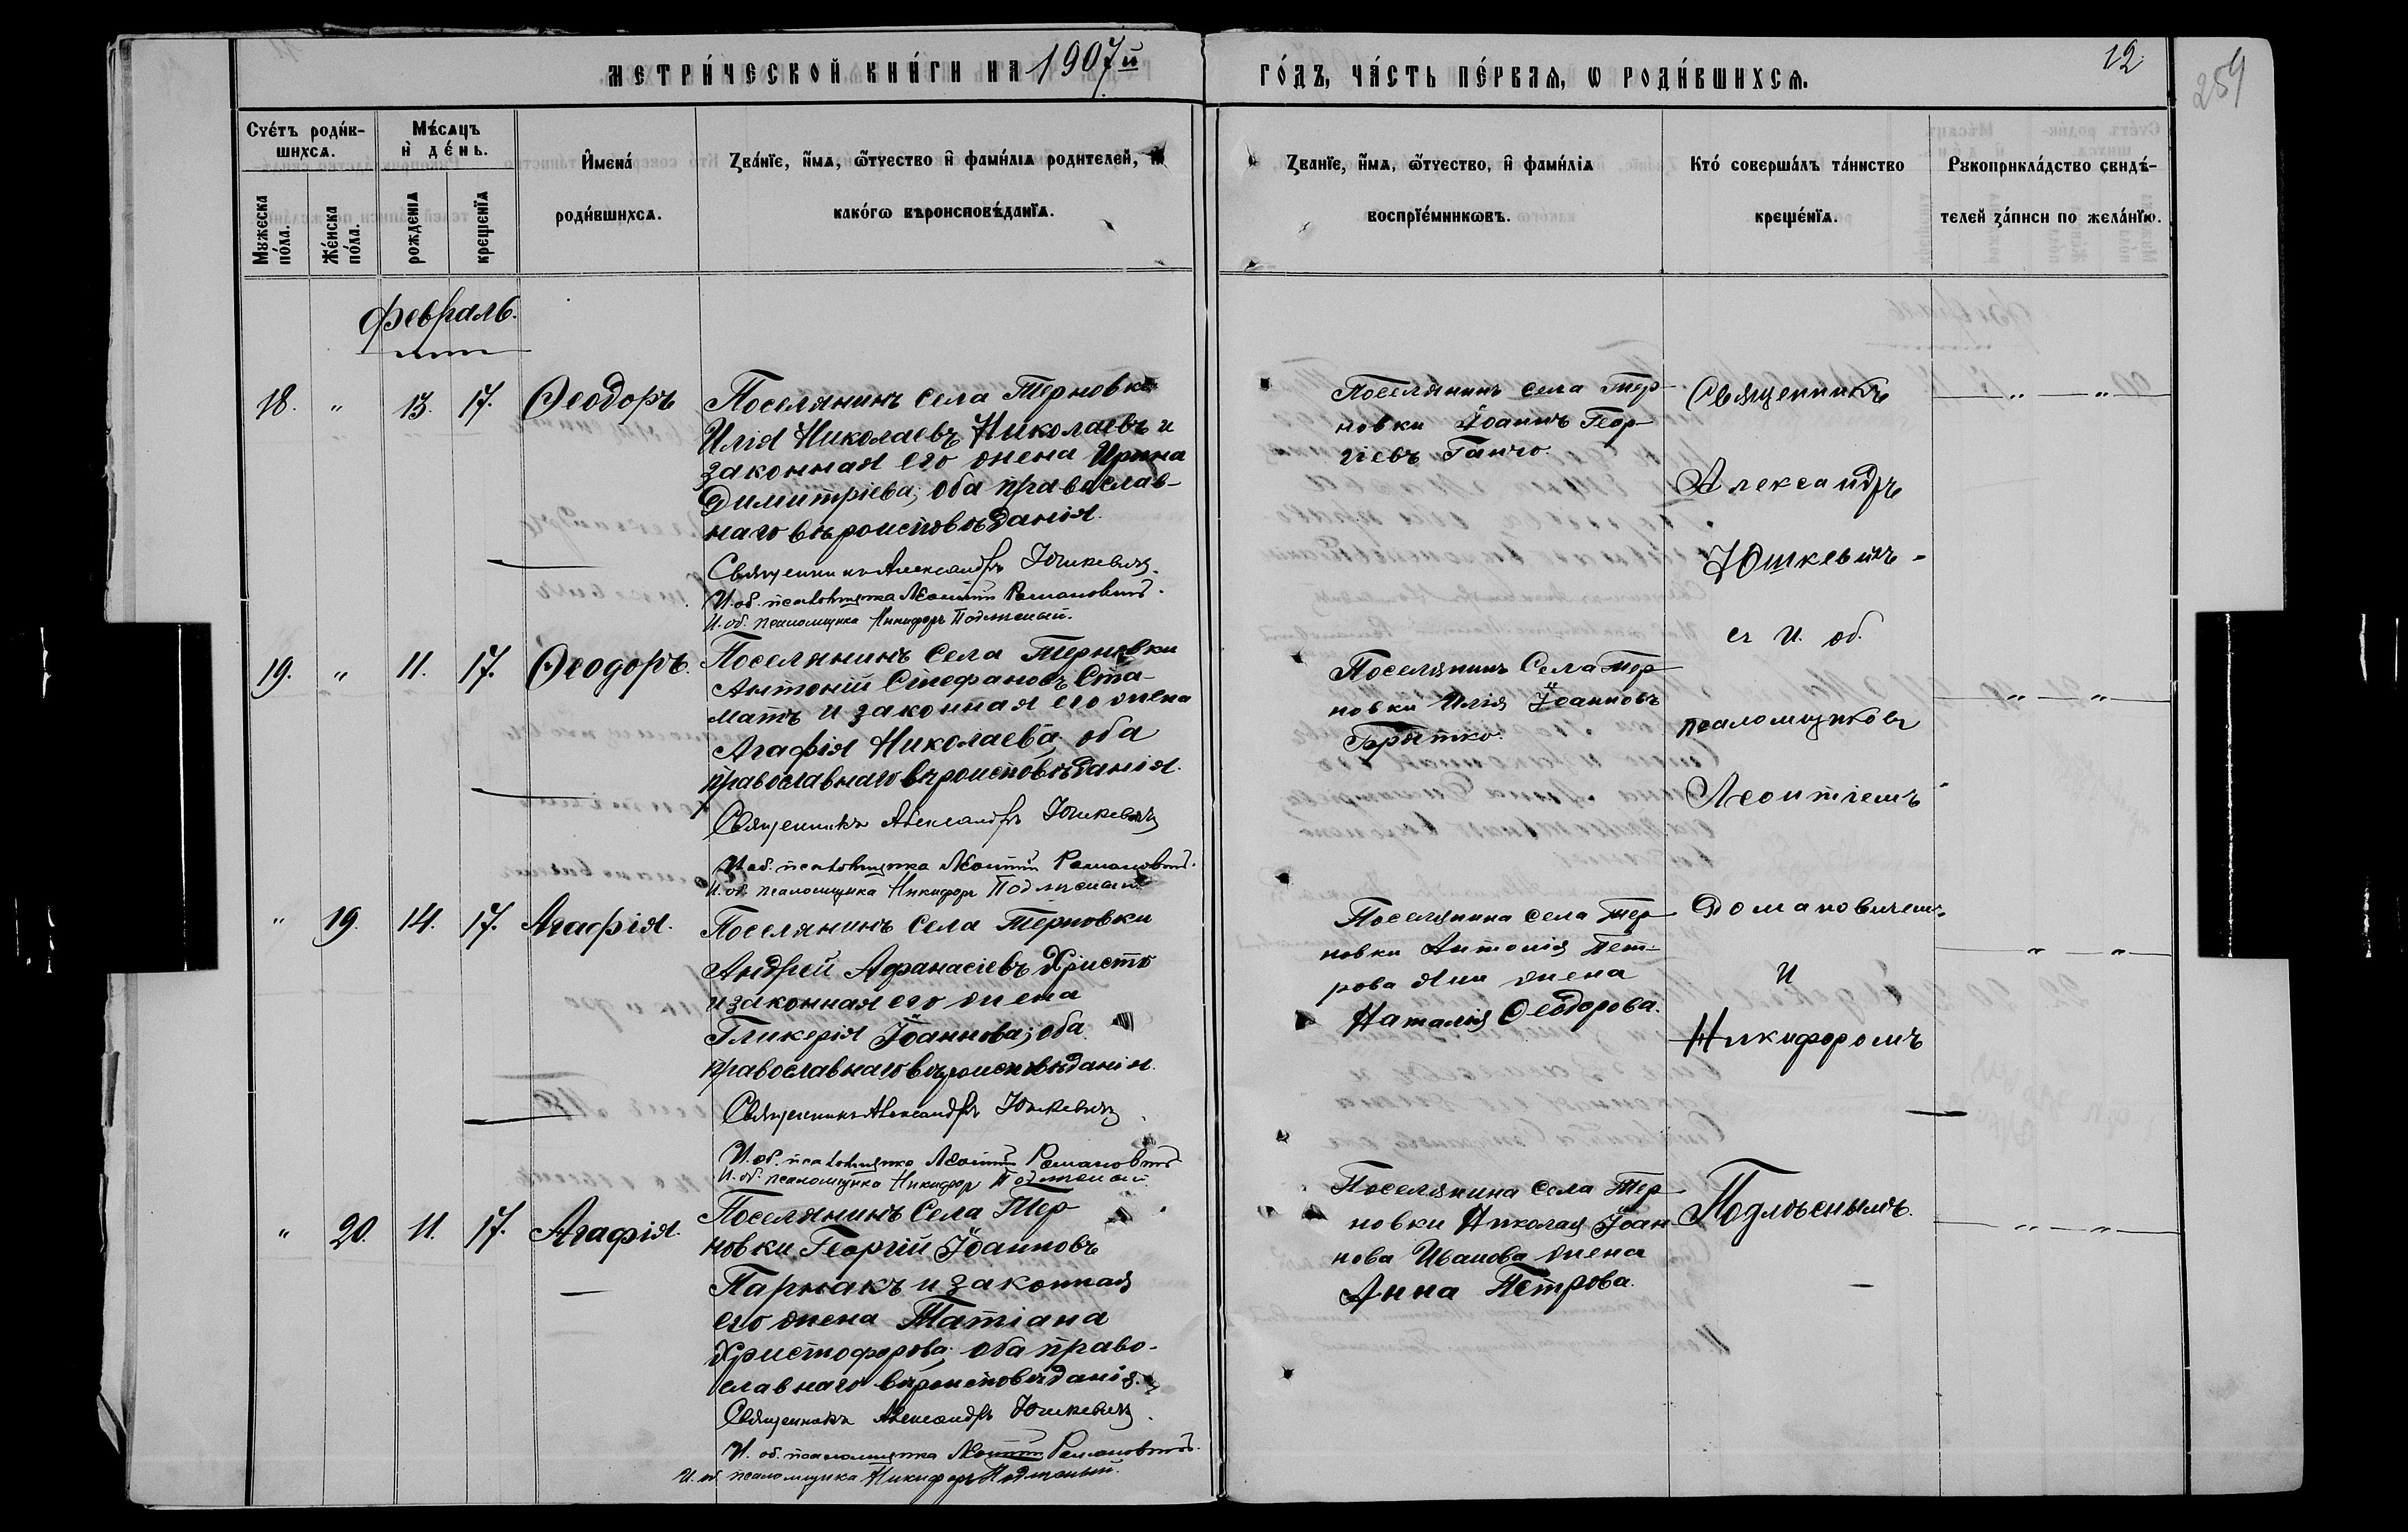 МЕТРИ́ЧЕСКОЙ КНИ́ГИ НА 1907й
ГО́ДЪ, ЧА́СТЬ ПЕ́РВАЯ, Ѡ РОДИ́ВШИХСЯ.
12
259
Счётъ роди́в-
шихся.
Мѣ́сяцъ
и де́нь.
Мужеска
по́ла.
Же́нска
по́ла.
рожденія
крещенїя
Имена́
роди́вшихся.
Зва́нїе, и́мя, ѻ́тчество и фами́лїя родителей, и
како́гѡ вѣроисповѣ́данїя.
Званїе, и́мя, ѻ́тчество, и фами́лїя
воспрїе́мникѡвъ.
Кто́ соверша́лъ та́инство
креще́нїя.
Рукоприкла́дство свидѣ́-
телей за́писи по жела́нїю.
Февраль.
18. " 13. 17. Ѳеодоръ
Поселянинъ села Терновки
Илія Николаевъ Николаевъ и
законная его жена Ирина
Димитріева; оба православ-
наго вѣроисповѣданія.
Священникъ Александръ Юшкевичъ.
И. об. псаломщика Леонтій Романовичъ.
И. об. псаломщика Никифоръ Подлѣсный.
Поселянинъ села Тер-
новки Іоаннъ Геор-
гіевъ Ганчо.
Священникъ
Александръ
Юшкевичъ -
съ И. об.
псаломщиковъ
Леонтіемъ
Романовичемъ
и
Никифоромъ
Подлѣснымъ.
19. " 11. 17. Ѳеодоръ.
Поселянинъ села Терновки
Антоній Стефановъ Ста-
матъ и законная его жена
Агафія Николаева; оба
православнаго вѣроисповѣданія.
Священникъ Александръ Юшкевичъ
И. об. псаломщика Леонтій Романовичъ.
И. об. псаломщика Никифоръ Подлѣсный
Поселянинъ Села Тер-
новки Илія Іоанновъ
" 19. 14. 17. Агафія.
Поселянинъ села Терновки
Андрей Афанасіевъ Христо
и законная его жена
Гликерія Іоаннова; оба
православнаго вѣроисповѣданія.
Священникъ Александръ Юшкевичъ
И. об. псаломщика Леонтій Романовичъ
И. об. псаломщика Никифоръ Подлѣсный.
Поселянина села Тер-
новки Антонія Пет-
рова жена
Наталія Ѳеодорова.
" 20. 11. 17. Агафія.
Поселянинъ Села Тер-
новки Георгій Іоанновъ
Пармакъ и законная
его жена Татіана
Христофорова; оба право-
славнаго вѣроисповѣданія.
Священникъ Александръ Юшкевичъ.
И. об. псаломщика Леонтій Романовичъ.
И. об. псаломщика Никифоръ Подлѣсный.
Поселянина села Тер-
новки Николая Іоан-
нова Иванова жена
Анна Петрова.